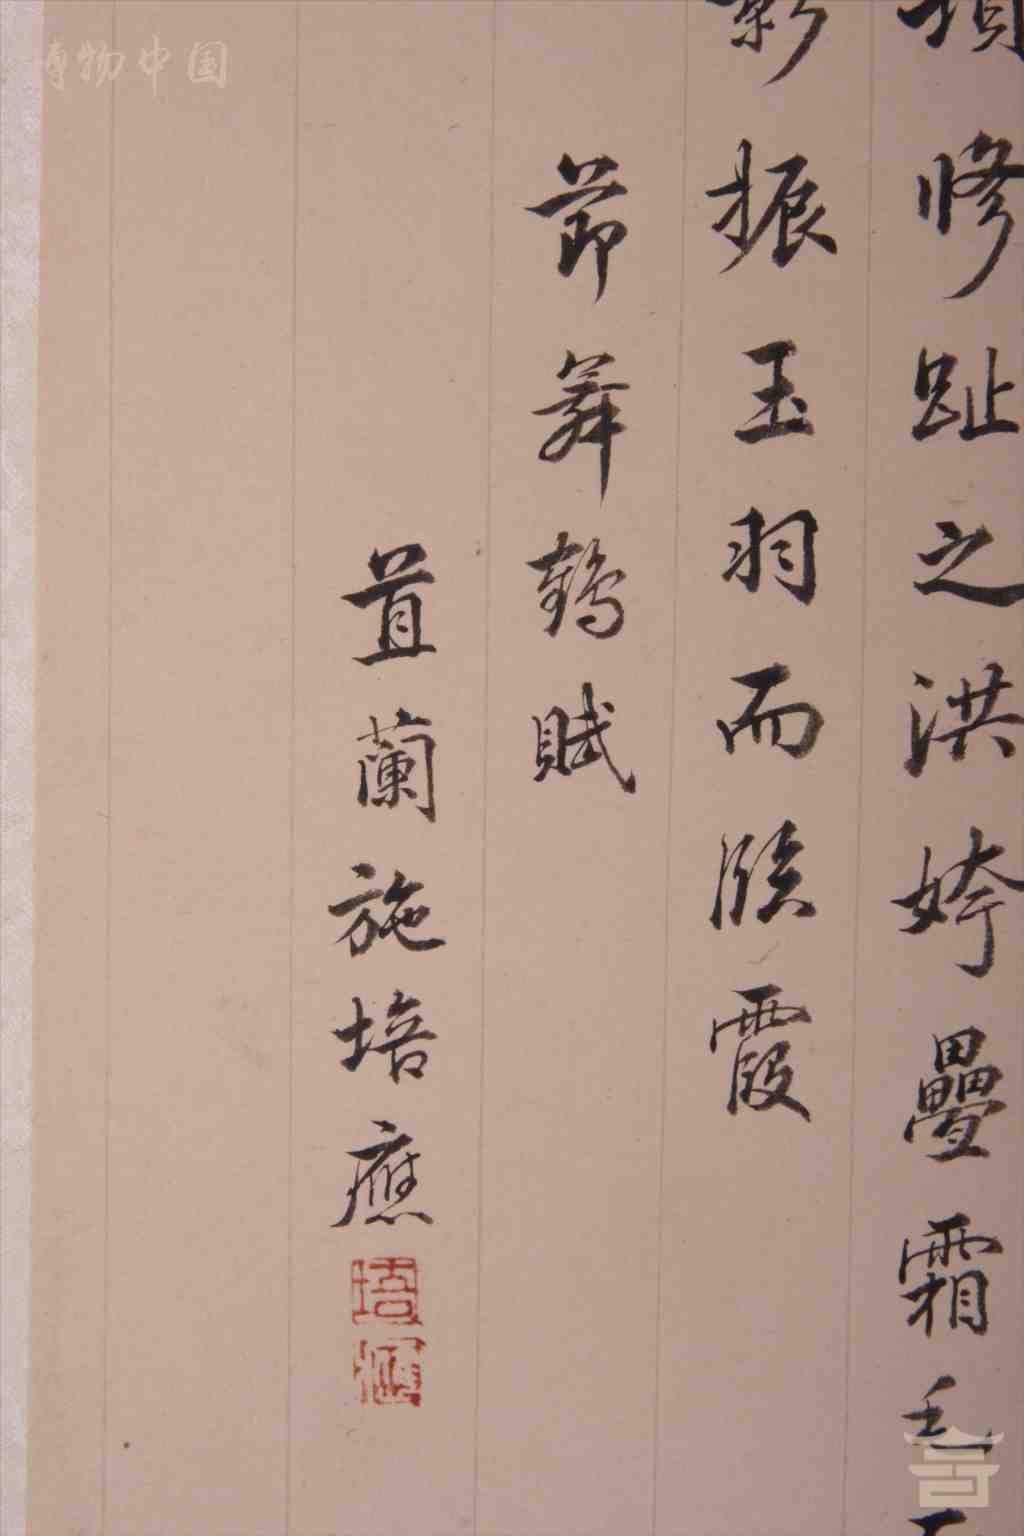 修趾之洪姱疊霜毛
影振玉羽而臨霞
節舞鶴賦
苴蘭施培應
博物中国